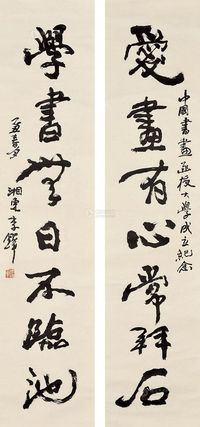 中國書畫函授大學成立紀念
愛畫有心常拜石
學書無日不臨池
乙丑春
湘東李鐸